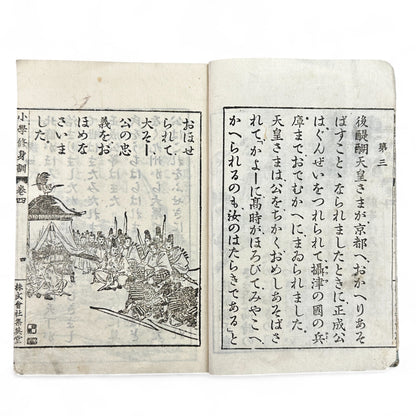 第三
後醍醐天皇さまが、京都へ、おかへりあそ
ばすことゝなられましたときに、正成公
はぐんぜいをつれられて、攝津の國の兵
庫までおでむかへにまゐられました。
天皇さまは、公をちかくおめしあそばさ
れて、「かよーに高時がほろびて、みやこへ、
かへられるのも、汝のはたらきである」と
おほせ
られて
大そー
公の忠
義をお
ほめな
さいま
した。
小學修身訓 卷四
四
株式會社集英堂